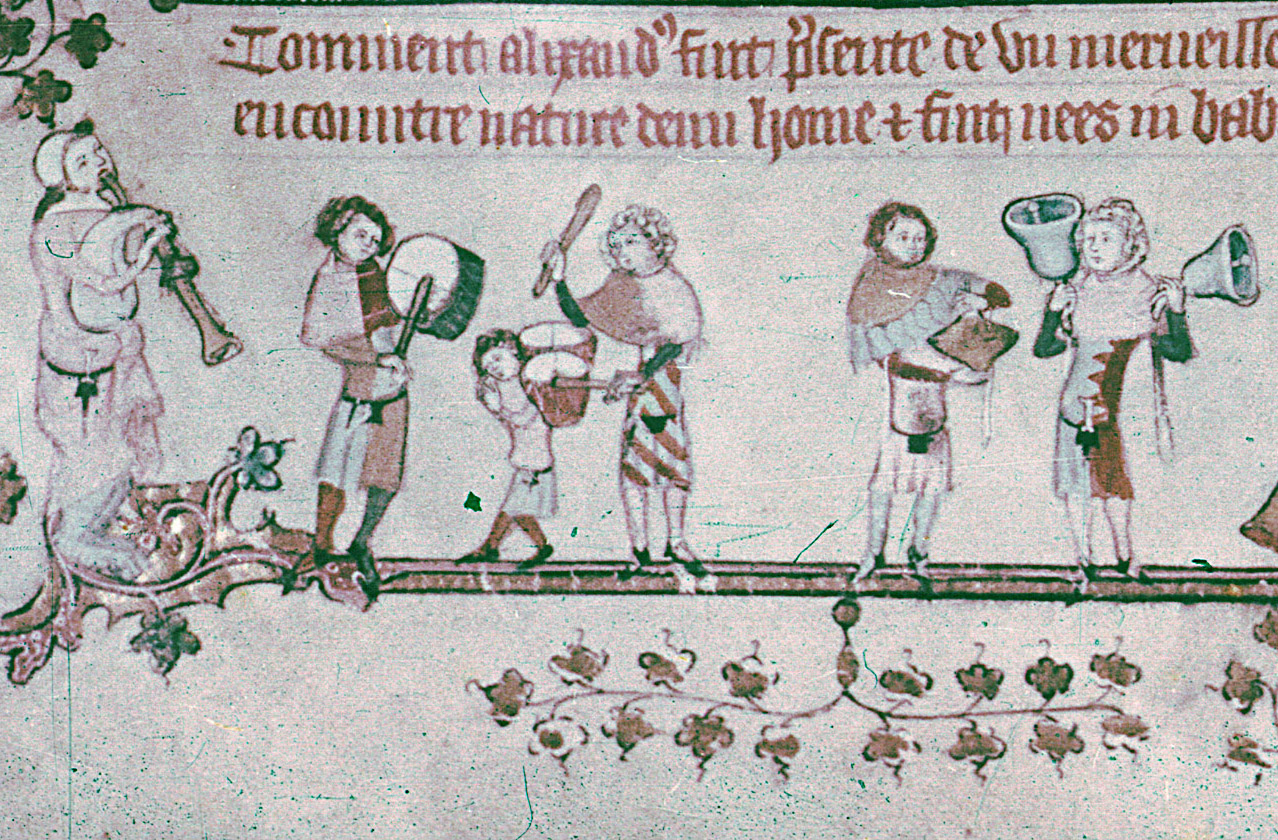 Comment alixand' fuit p'sente de vn merueille
encountre nature demi home ⁊ fuit nees in bab